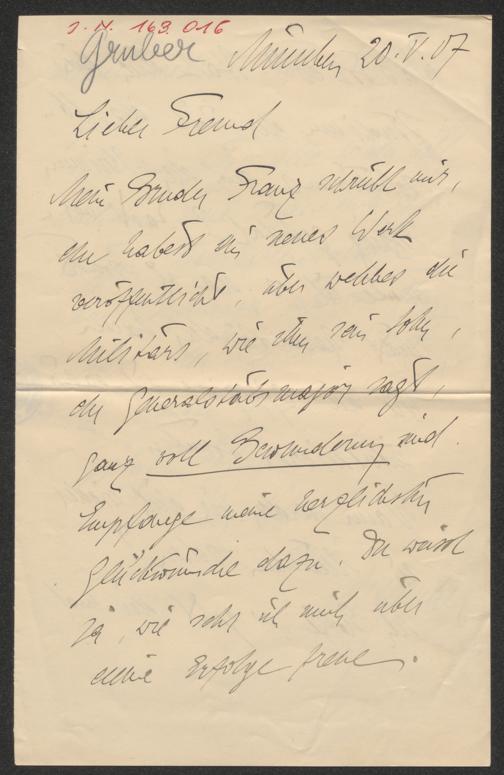 I. N. 163.016
Gruber
München 20.V.07
Lieber Freund
Mein Bruder Franz schreibt mir,
du habest ein neues Werk
veröffentlicht, über welches die
Militärs, wie ihm sein Sohn,
der Generalstabsmajor sagt,
ganz voll Bewunderung sind.
Empfange meine herzlichsten
Glückwünsche dazu. Du weisst
ja, wie sehr ich mich über
deine Erfolge freue.